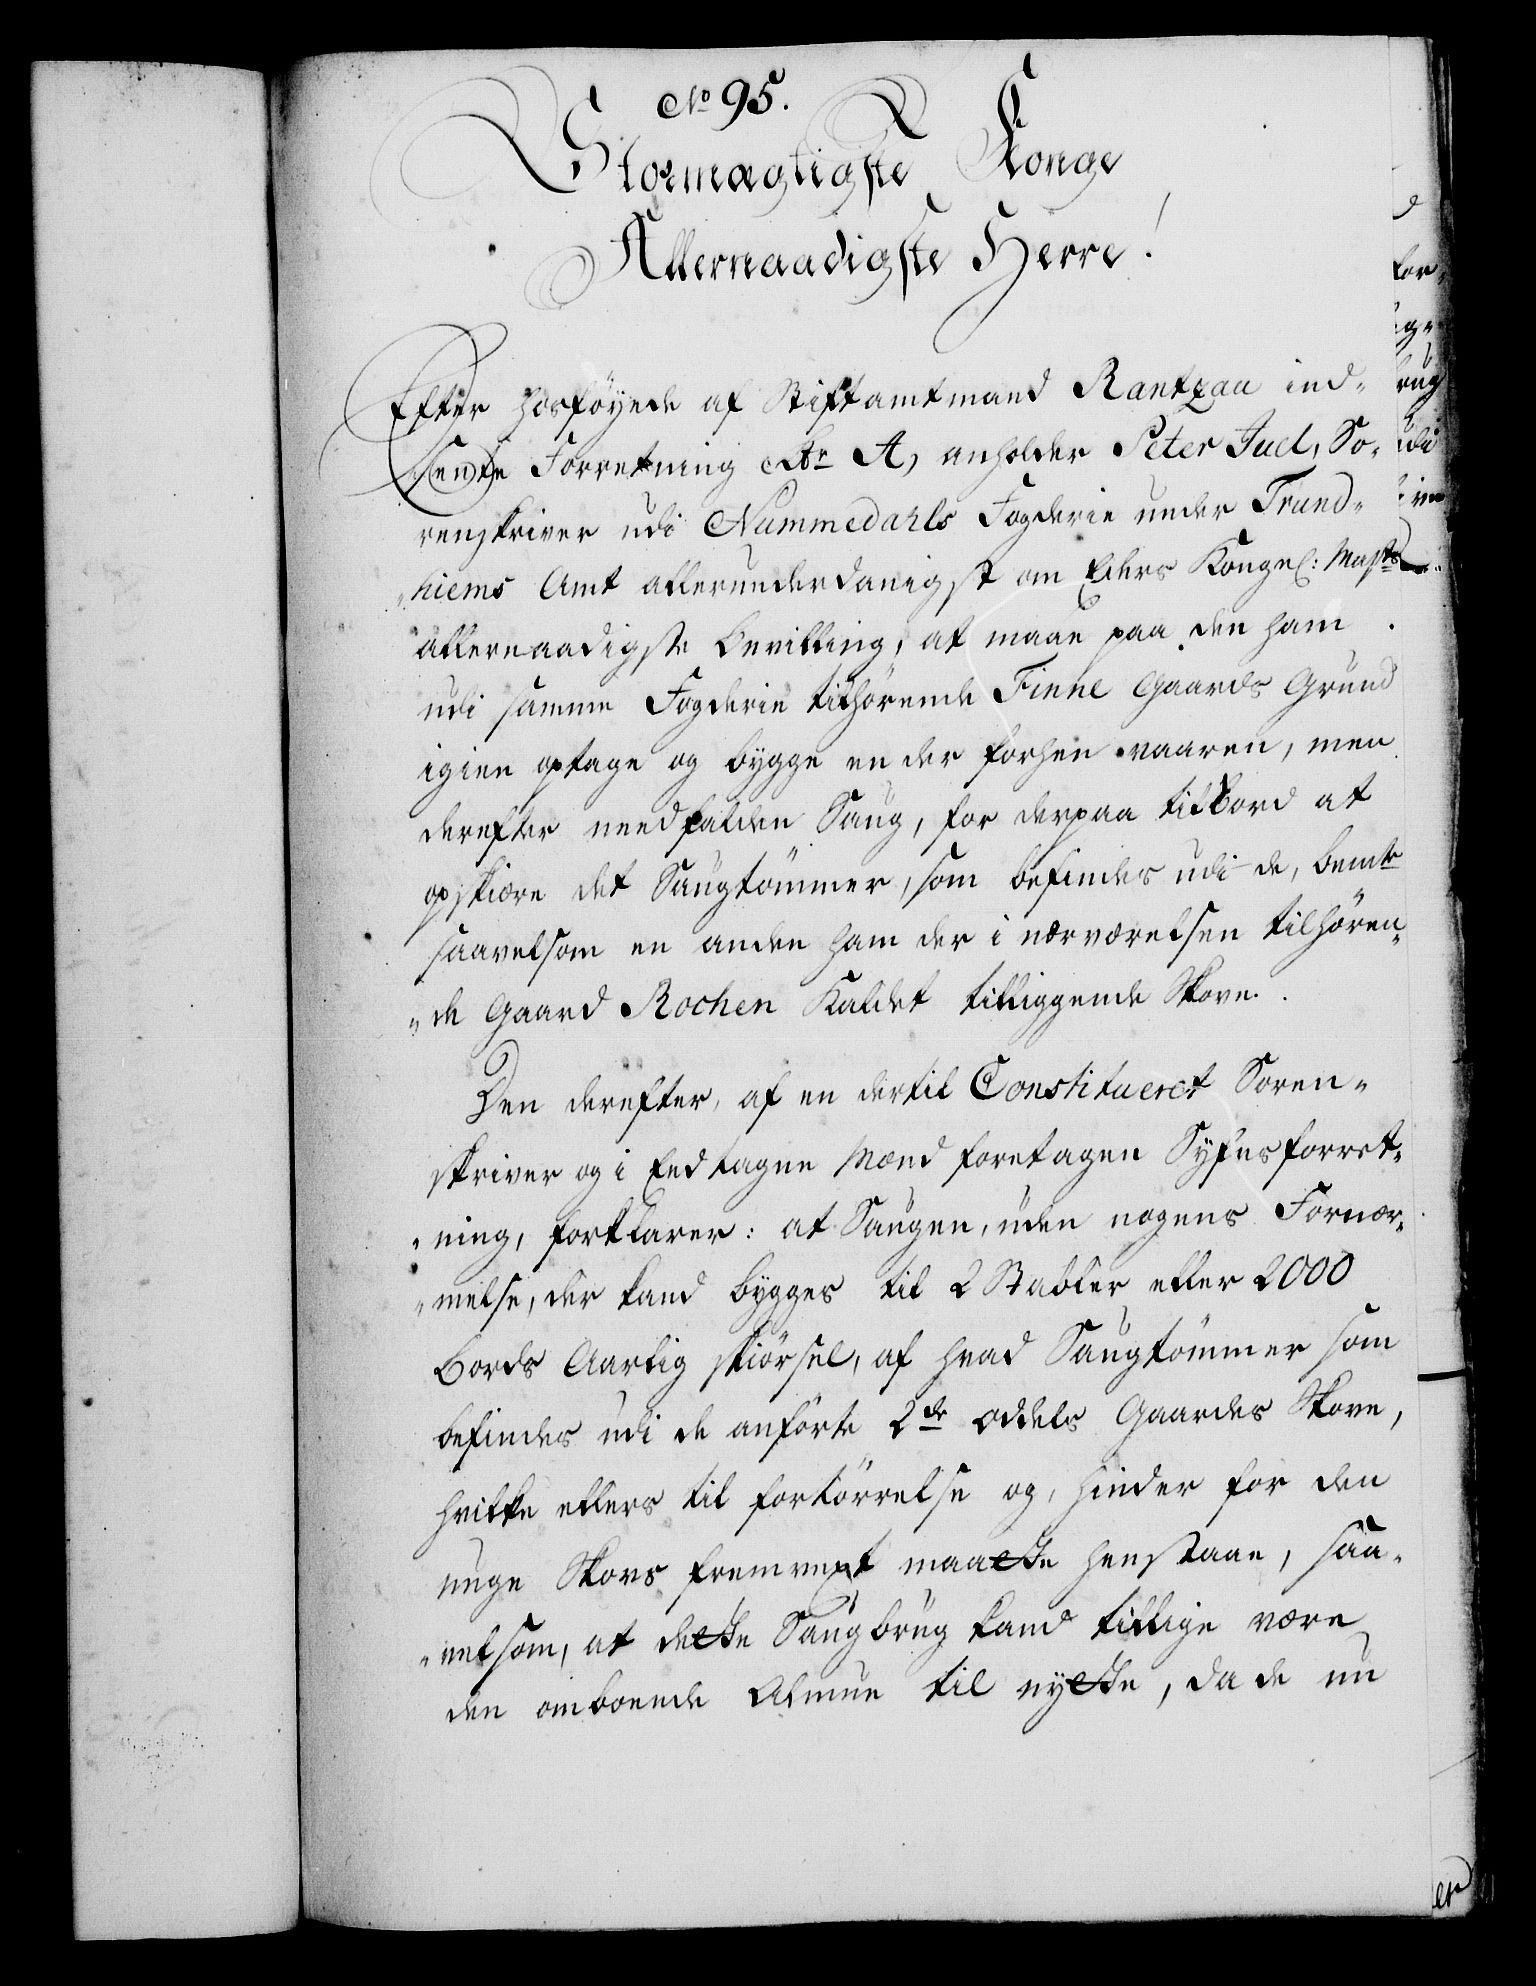 No 95.
Stormægtigste Konge
Allernaadigste Herre!
Efter hosföyede af Stiftamtmand Rantzau ind-
sendte Forretning Ltr A, anholder Peter Juel, So-
renskriver udi Nummedahls Fogderie under Trund-
hiems Amt allerunderdanigst om Eders Kongel: Mayts
allernaadigste Bevilling, at maae paa den ham
udi samme Fogderie tilhörende Finne Gaards Grund
igien optage og bygge en der forhen vaaren, men
derefter needfalden Saug, for derpaa til Bord at
opskiære det Saugtömmer, som befindes udi de, bemte
saavelsom en anden ham der i nærværelsen tilhören-
de Gaard Rochen kaldet tilliggende Skove.
Den derefter, af en dertil Constitueret Soren-
skriver og i Eedtagne Mænd foretagen Syfnsforret-
ning, forklarer: at Saugen, uden nogens Fornær-
melse, der kand bygges til 2 Stabler eller 2000
Bords Aarlig skiörsel, af hvad Saugtömmer som
befindes udi de anförte 2de Oddels Gaardes Skove,
hvilke ellers til fortörrelse og, hinder for den
unge Skovs fremvext maatte henstaae, saa-
velsom, at dette Saugbrug kand tillige være
den omboende Almue til nytte, da de nu